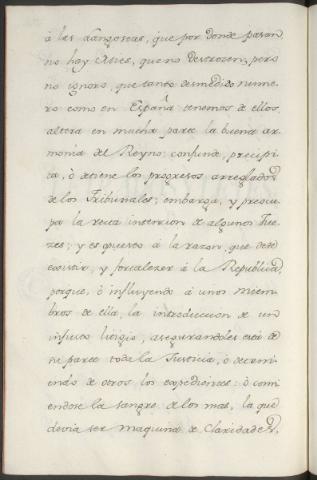 á las langostas, que por donde pasan
no hay Mies, que no destrozen; pero
no ignoro, que tanto desmedido nume-
ro como en España tenemos de ellos,
altera en mucha parte la buena ar-
monia del Reyno: confunde, precipi-
ta, ò detiene los progresos arreglados
de los Tribunales; embarga, y preocu-
pa la recta intencion de algunos Jue-
zes; y es opuesto á la razon, que debe
existir, y fortalezer á la Republica,
porque, ò influyendo á unos miem-
bros de ella, la introduccion de un
injusto litigio, asegurandoles está de
su parte toda la Justicia, ò deteni-
endo de otros los expedientes: ò comi-
endose la sangre de los mas, la que
devia ser maquina de Claridades,